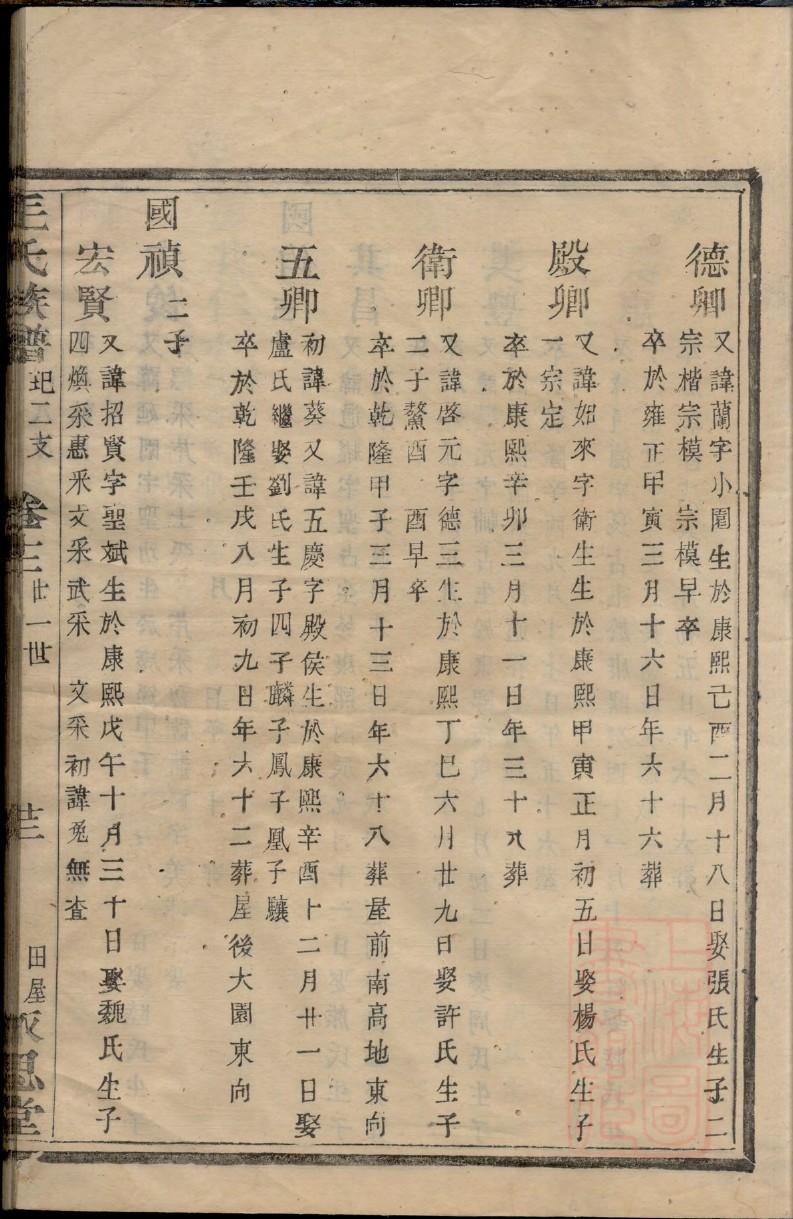 德卿
又諱蘭字小園生於康熙己酉二月十八日娶張氏生子二
宗楷宗模 宗模早卒
卒於雍正甲寅三月十六日年六十六葬
殿卿
又諱如來字衛生生於康熙甲寅正月初五日娶楊氏生子
一宗定
卒於康熙辛卯三月十一日年三十八葬
衛卿
又諱啓元字德三生於康熙丁巳六月廿九日娶許氏生子
二子鰲酉 酉早卒
卒於乾隆甲子三月十三日年六十八葬屋前南高地東向
五卿
初諱葵又諱五慶字殿侯生於康熙辛酉十二月廿一日娶
盧氏繼娶劉氏生子四子麟子鳳子凰子驤
卒於乾隆壬戌八月初九日年六十二葬屋後大園東向
國禎 二子
宏賢
又諱招賢字聖斌生於康熙戊午十月三十日娶魏氏生子
四煥采惠采文采武采 文采初諱兔無查
王氏族譜 圯二支 卷三 廿一世 廿三 田屋 反思堂